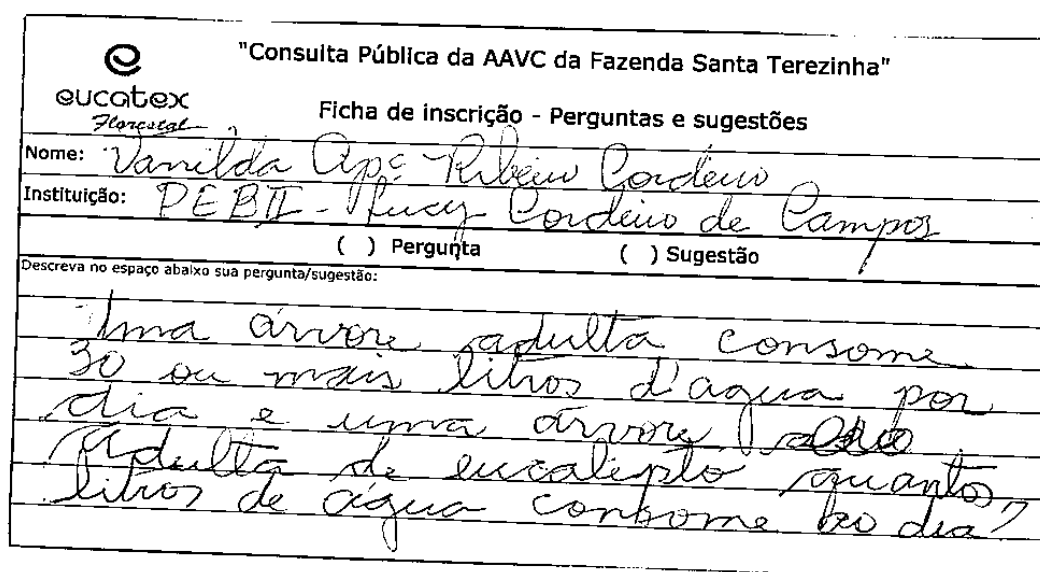 "Consulta Pública da AAVC da Fazenda Santa Terezinha"
eucatex
Florestal
Ficha de inscrição - Perguntas e sugestões
Nome: Vanilda Apª Ribeiro Cordeiro
Instituição: PEBII - Lucy Cordeiro de Campos
( ) Pergunta ( ) Sugestão
Descreva no espaço abaixo sua pergunta/sugestão:
Uma árvore adulta consome
30 ou mais litros d'agua por
dia e uma árvore
adulta de eucalipto quantos
litros de água consome ao dia?